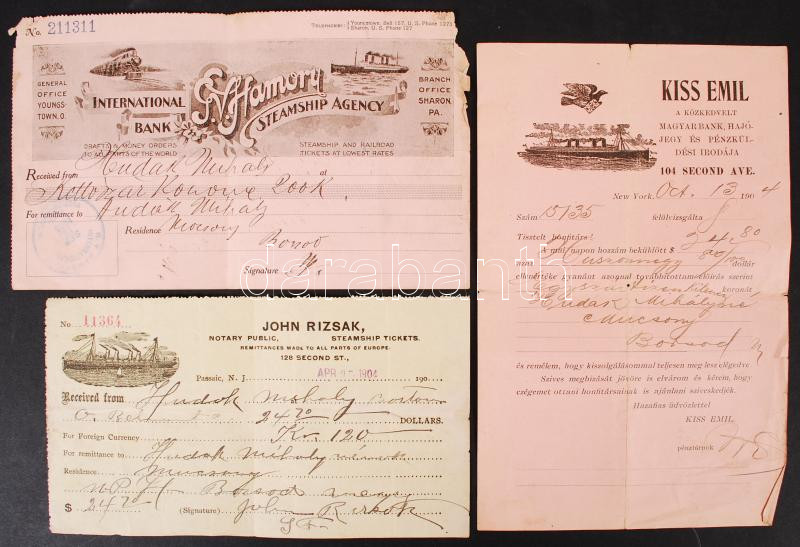 No. 211311
TELEPHONE: Youngstown, Bell 157, U. S. Phone 1273
Sharon, U. S. Phone 127
GENERAL OFFICE YOUNGSTOWN, O.
INTERNATIONAL BANK
G.V. Hamory
STEAMSHIP AGENCY
BRANCH OFFICE SHARON, PA.
DRAFTS & MONEY ORDERS
TO ALL PARTS OF THE WORLD
STEAMSHIP AND RAILROAD
TICKETS AT LOWEST RATES
Received from Hudak Mihaly at
200 K.
For remittance to Hudak Mihaly
Residence Mucsony
Borsod
Signature
No 11364
JOHN RIZSAK,
NOTARY PUBLIC, STEAMSHIP TICKETS.
REMITTANCES MADE TO ALL PARTS OF EUROPE.
128 SECOND ST.,
Passaic, N. J. APR 1904 190
Received from Hudak Mihaly
24 70 DOLLARS.
For Foreign Currency Kr. 120
For remittance to Hudak Mihaly
Residence Mucsony
Borsod
$ 24 70 (Signature) John
KISS EMIL
A KÖZKEDVELT
MAGYAR BANK, HAJÓ-
JEGY ÉS PÉNZKÜL-
DÉSI IRODÁJA
104 SECOND AVE.
New York, Oct. 13 1904
Szám 15135 felülvizsgálta
Tisztelt honfitárs!
A mai napon hozzám beküldött $ 24.80
azaz Huszonnégy dollár
ellenértéke gyanánt azonnal továbbítottam előírás szerint
koronát
Hudak Mihályné
Mucsony
Borsod
és remélem, hogy kiszolgálásommal teljesen meg lesz elégedve
Szives megbizását jövőre is elvárom és kérem, hogy
czégemet ottani honfitársainak is ajánlani sziveskedjék.
Hazafias üdvözlettel
KISS EMIL
pénztárnok
darabanth